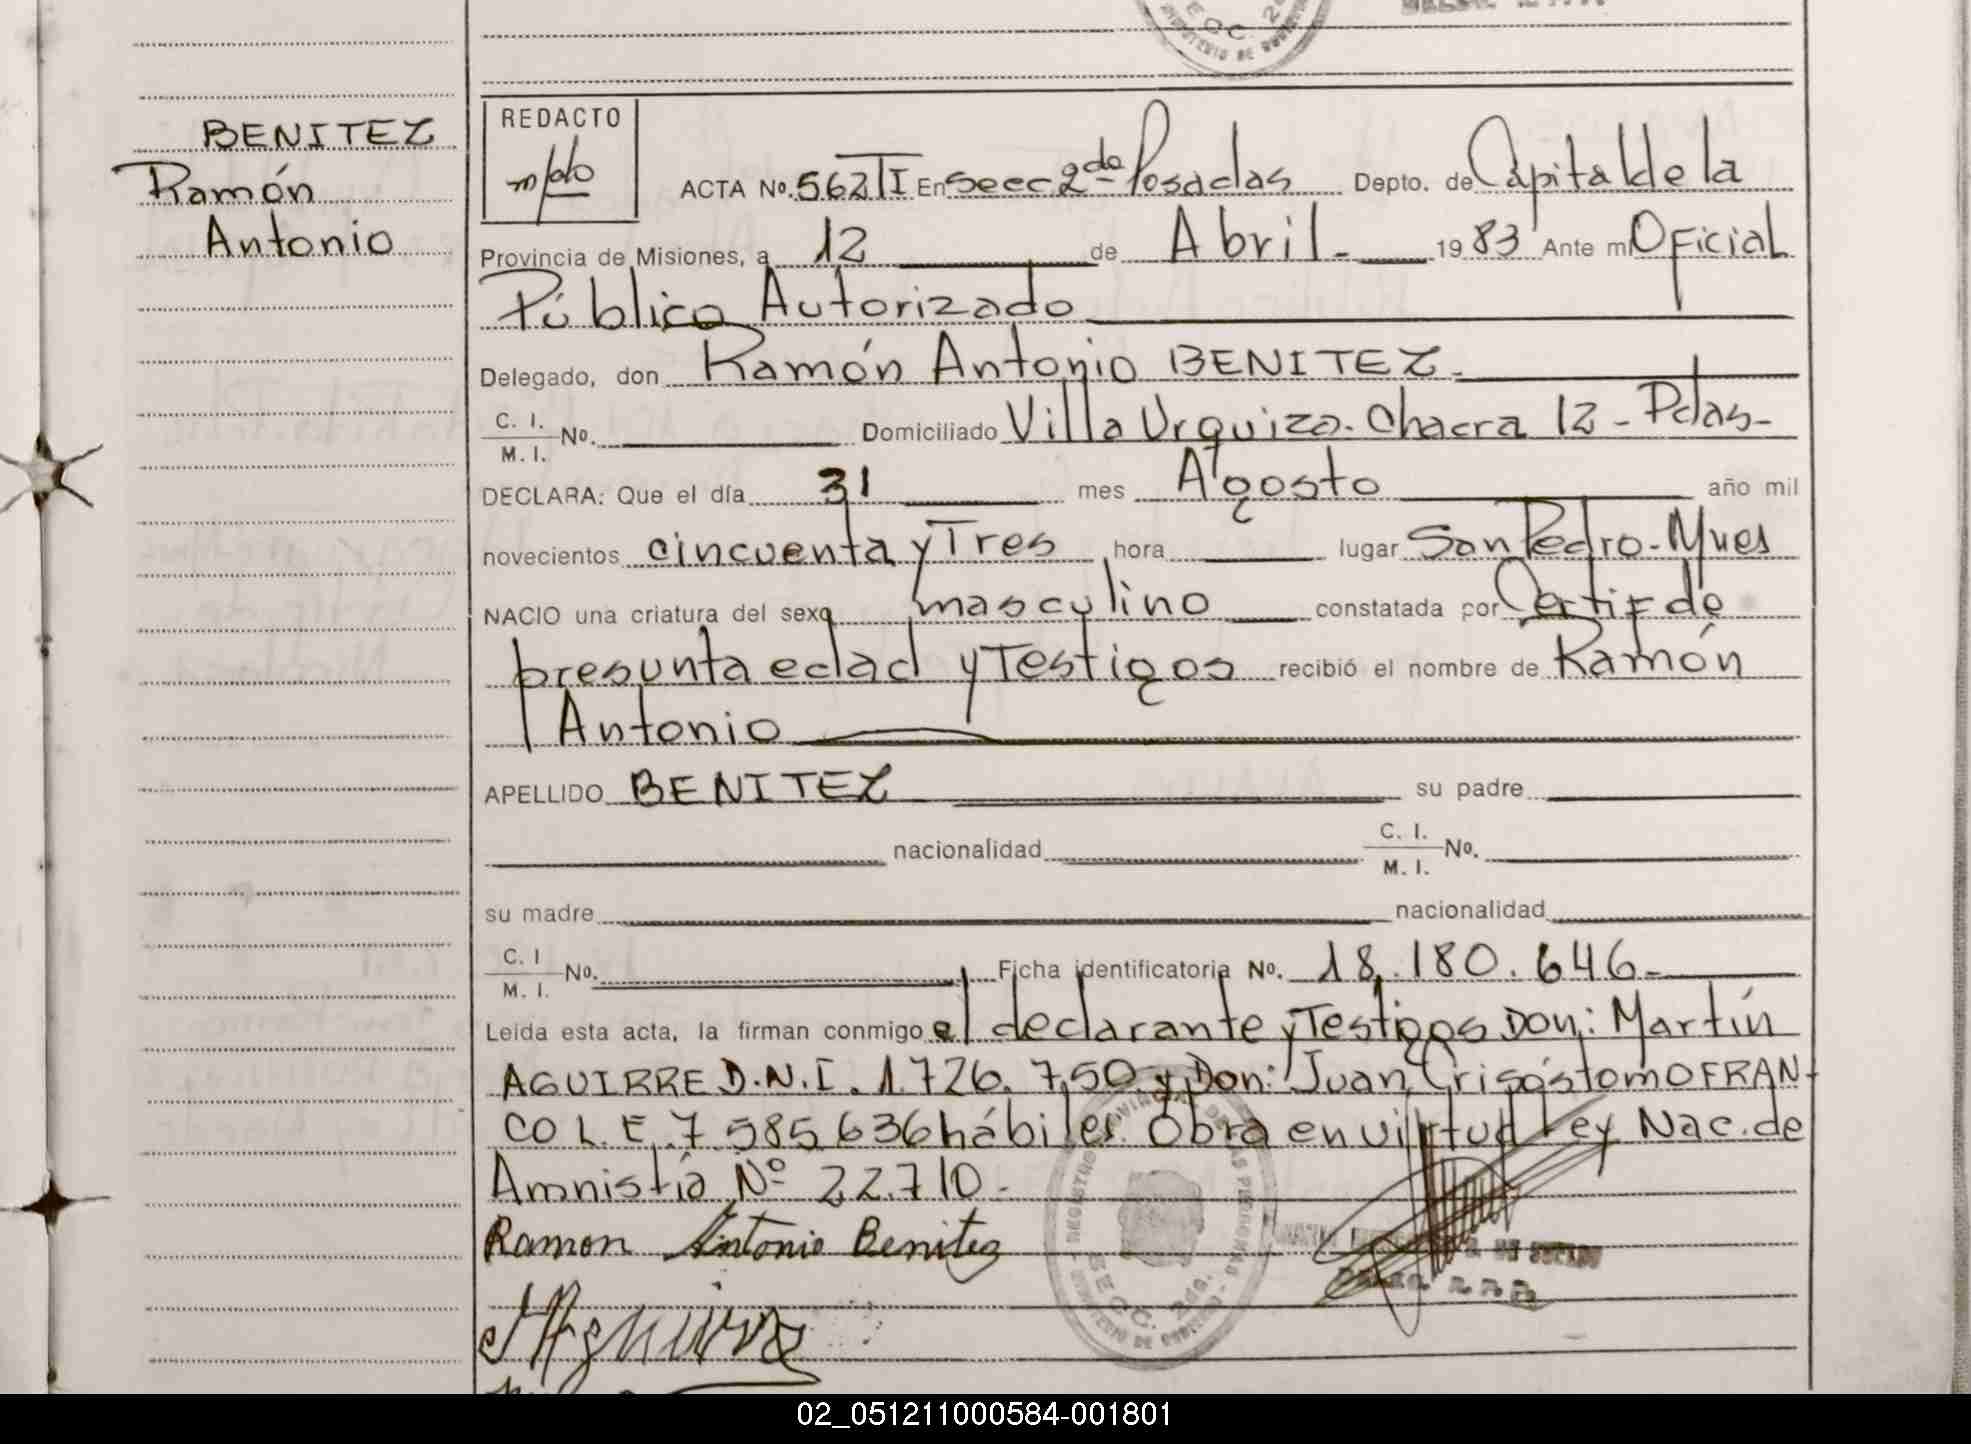 BENITEZ
Ramón
Antonio
REDACTO
ACTA No. 562 TI En Secc 2da Posadas Depto. de Capital de la
Provincia de Misiones, a 12 de Abril - 1983 Ante mi Oficial
Público Autorizado
Delegado, don Ramón Antonio BENITEZ.
C. I.
M. I. No. Domiciliado Villa Urquiza. Chacra 12 - Pdas-
DECLARA: Que el día 31 mes Agosto año mil
novecientos cincuenta y Tres hora lugar San Pedro - Mnes
NACIO una criatura del sexo masculino constatada por Certif de
presunta edad y Testigos recibió el nombre de Ramón
Antonio
APELLIDO BENITEZ su padre
nacionalidad C. I.
M. I. No.
su madre nacionalidad
C. I
M. I. No. Ficha identificatoria No. 18.180.646-
Leída esta acta, la firman conmigo el declarante y Testigos Don: Martín
AGUIRRE D.N.I. 1.726.750 y Don: Juan Crisóstomo FRAN-
CO L.E. 7.585.636 hábiles. Obra en virtud Ley Nac. de
Amnistía Nº 22.710-
Ramon Antonio Benitez
REGISTRO PROVINCIAL DE LAS PERSONAS
SECC. 2da.
MINISTERIO DE GOBIERNO
02_051211000584-001801